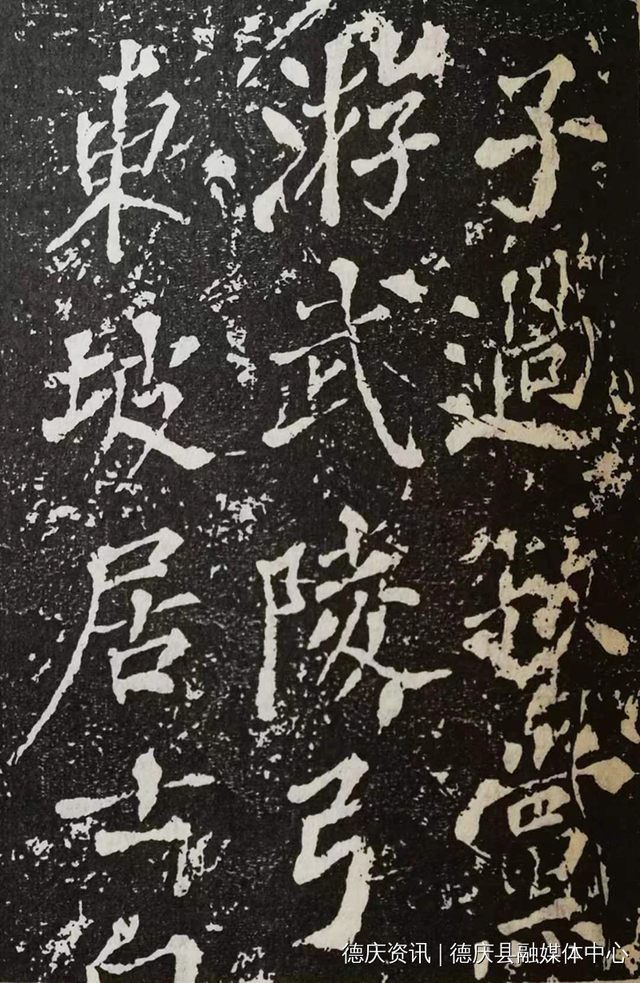 東坡居士
游武陵弓
子過叔黨
德庆资讯 | 德庆县融媒体中心